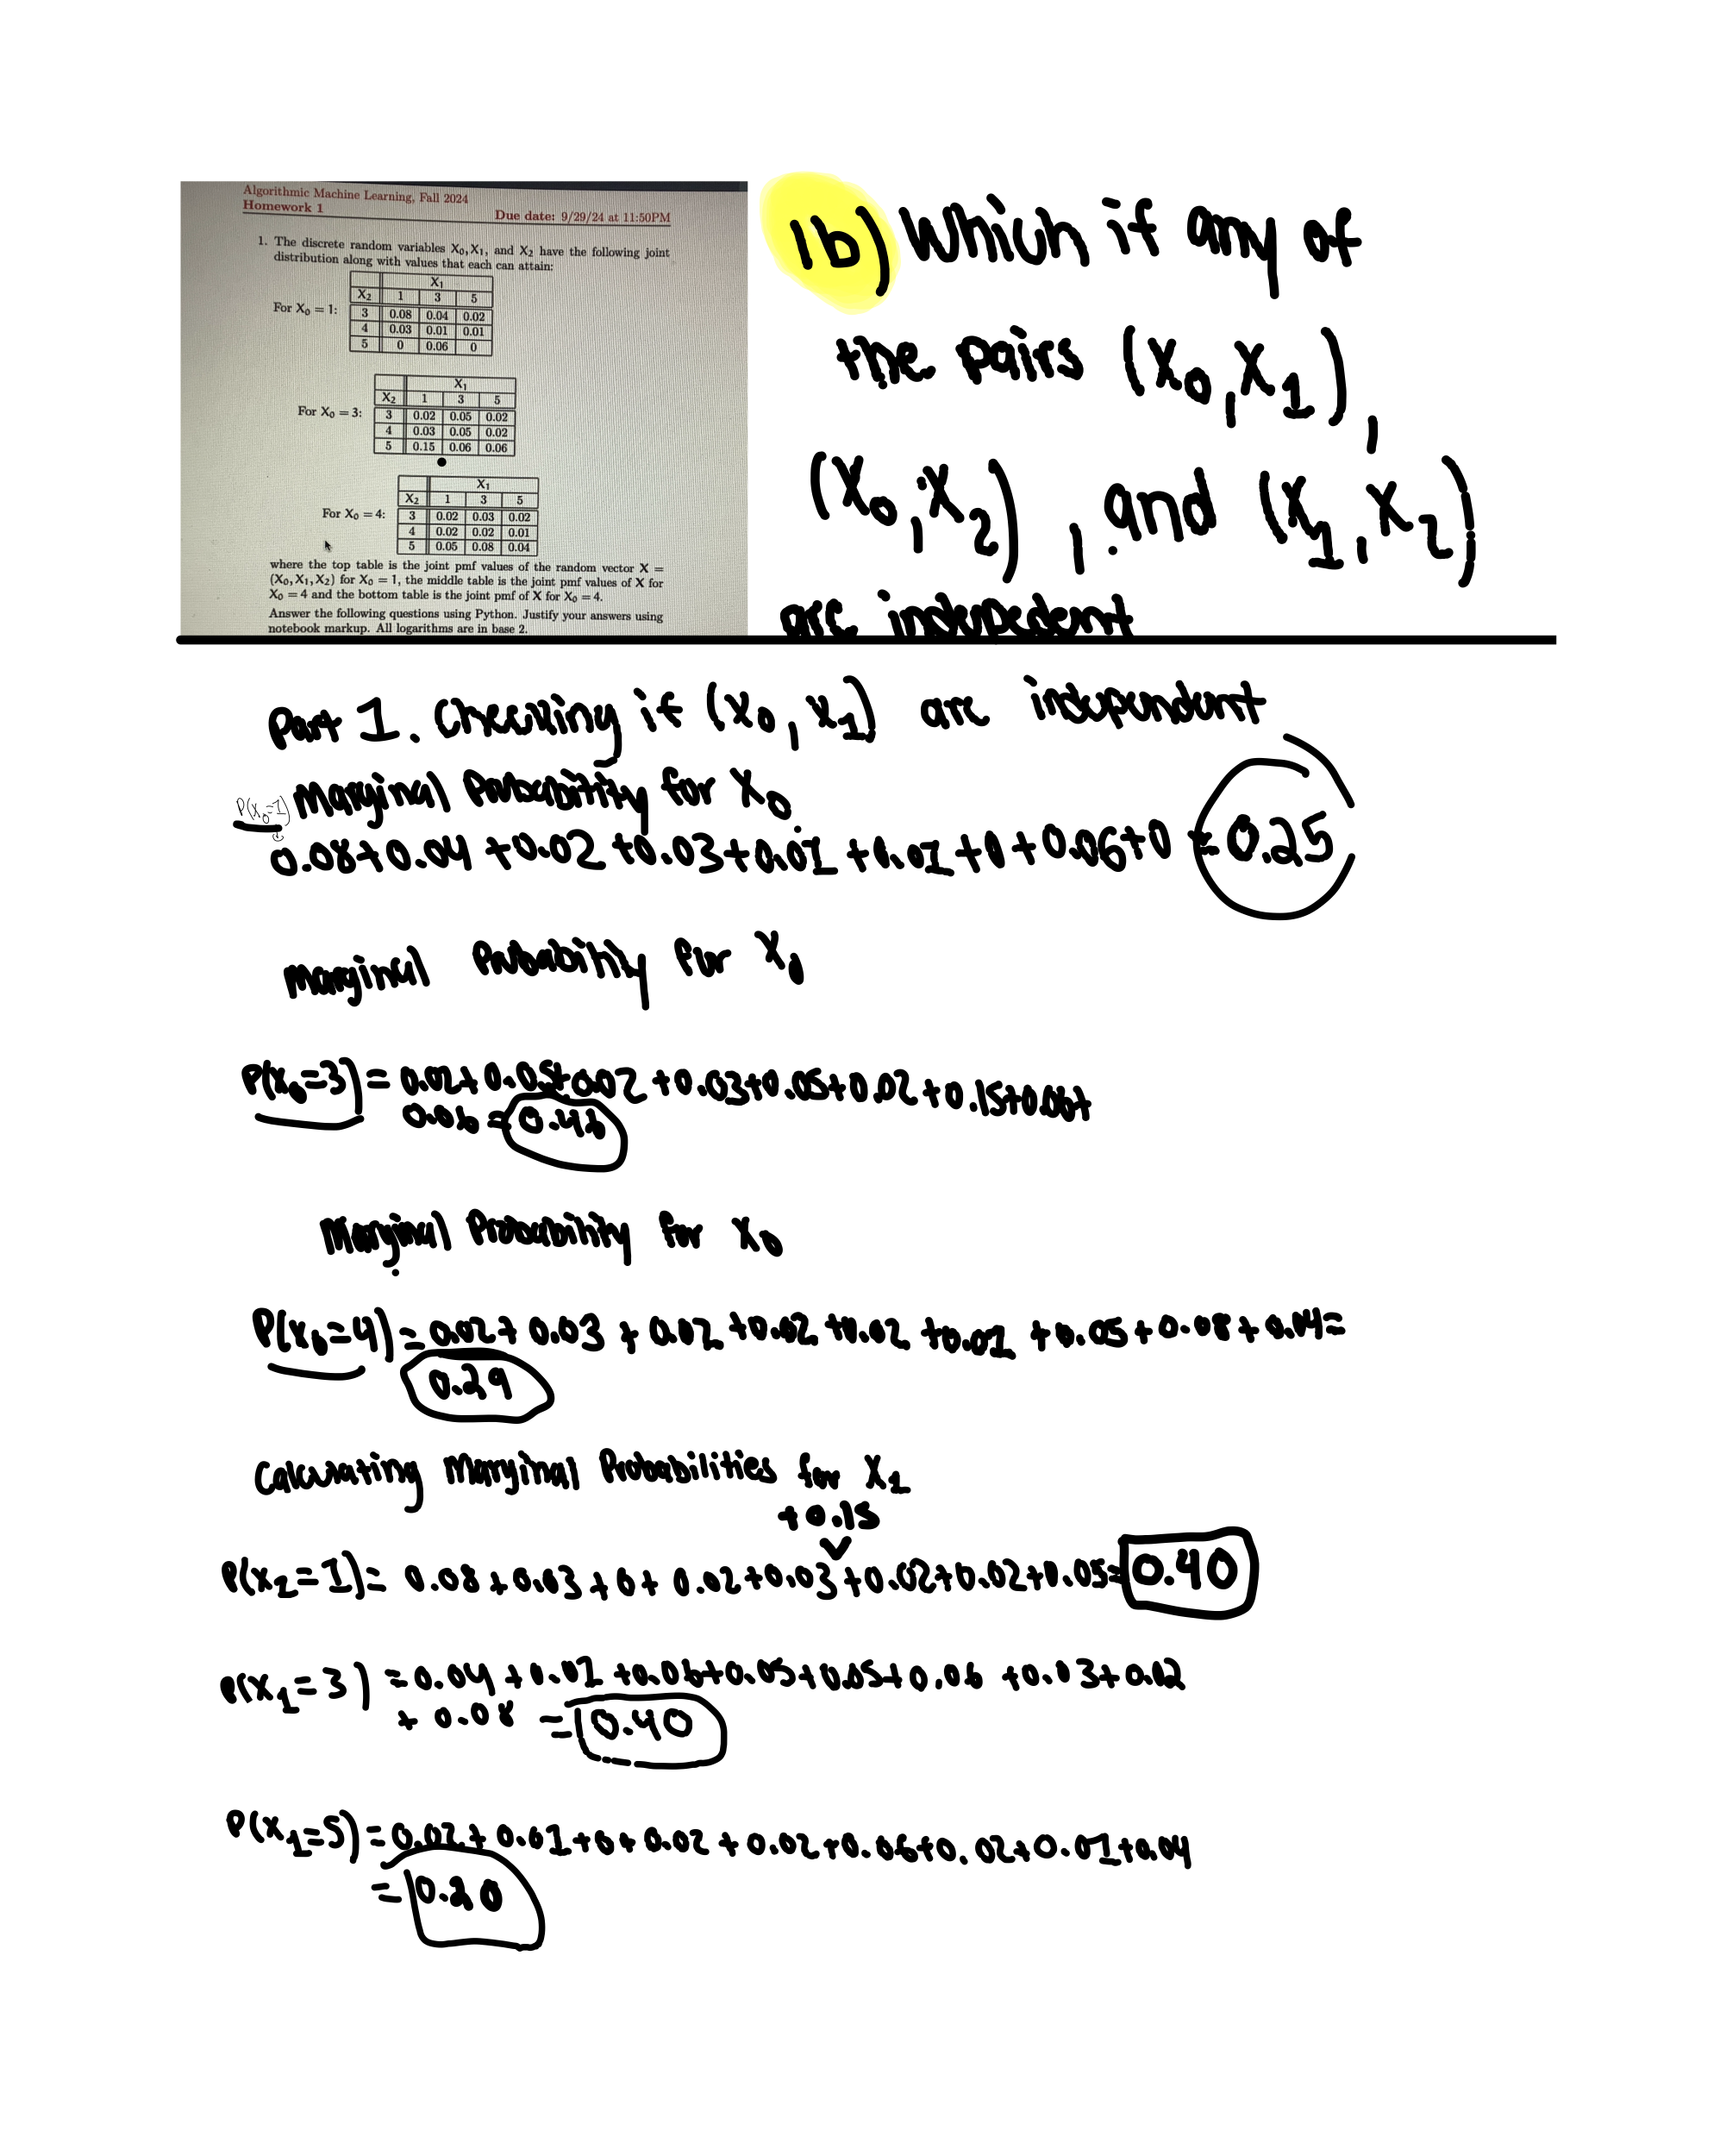 Algorithmic Machine Learning, Fall 2024
Homework 1
Due date: 9/29/24 at 11:50PM
1. The discrete random variables X₀, X₁, and X₂ have the following joint
distribution along with values that each can attain:
X₁
X₂ 1 3 5
For X₀ = 1:
3 0.08 0.04 0.02
4 0.03 0.01 0.01
5 0 0.06 0
X₁
X₂ 1 3 5
For X₀ = 3:
3 0.02 0.05 0.02
4 0.03 0.05 0.02
5 0.15 0.06 0.06
X₁
X₂ 1 3 5
For X₀ = 4:
3 0.02 0.03 0.02
4 0.02 0.02 0.01
5 0.05 0.08 0.04
where the top table is the joint pmf values of the random vector X =
(X₀, X₁, X₂) for X₀ = 1, the middle table is the joint pmf values of X for
X₀ = 4 and the bottom table is the joint pmf of X for X₀ = 4.
Answer the following questions using Python. Justify your answers using
notebook markup. All logarithms are in base 2.
1b) Which if any of
the pairs (X₀,X₁),
(X₀,X₂), and (X₁,X₂)
are indepedent
Part 1. Checking if (X₀, X₁) are independent
Marginal Probability for X₀
P(X₀=1)
0.08+0.04+0.02+0.03+0.01+0.01+0+0.06+0 = 0.25
Marginal Probability for X₀
P(X₀=3) = 0.02+0.05+0.02+0.03+0.05+0.02+0.15+0.06+
0.06 = 0.46
Marginal Probability for X₀
P(X₀=4) = 0.02+0.03+0.02+0.02+0.02+0.01+0.05+0.08+0.04=
0.29
Calculating Marginal Probabilities for X₁
+0.15
P(X₂=1)= 0.08+0.03+0+0.02+0.03+0.02+0.02+0.05= 0.40
P(X₁=3) = 0.04+0.01+0.06+0.05+0.05+0.06+0.03+0.02
+ 0.08 = 0.40
P(X₁=5) = 0.02+0.01+0+0.02+0.02+0.06+0.02+0.01+0.04
= 0.20